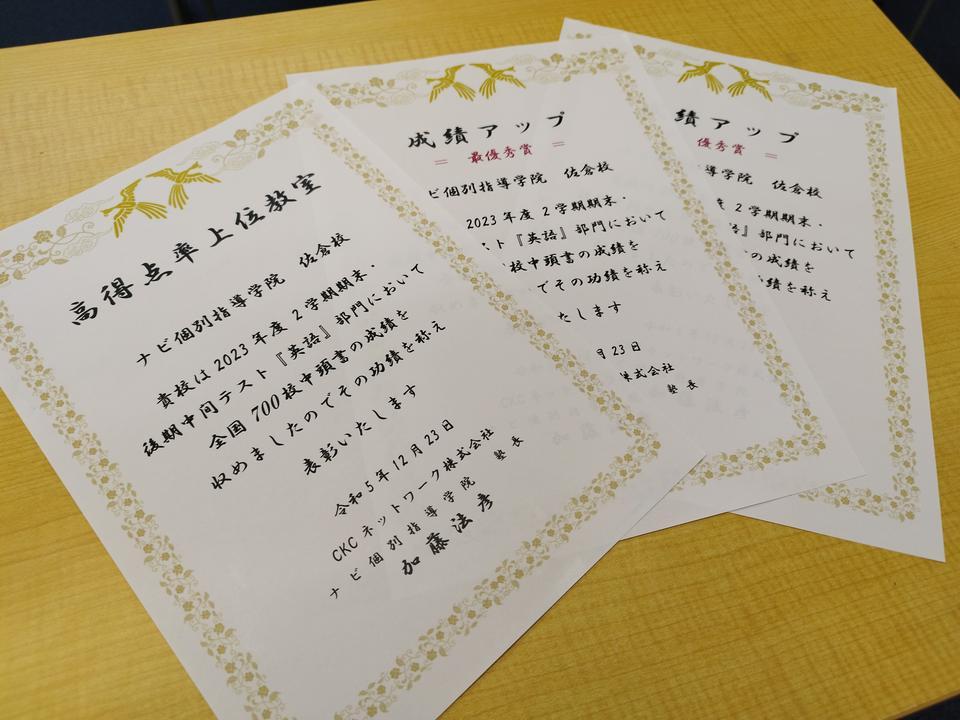 高得点率上位教室
ナビ個別指導学院 佐倉校
貴校は2023年度2学期期末・
後期中間テスト『英語』部門において
全国700校中頭書の成績を
収めましたのでその功績を称え
表彰いたします
令和5年12月23日
CKCネットワーク株式会社
ナビ個別指導学院 塾長
加藤法彦
成績アップ
= 最優秀賞 =
ビ個別指導学院 佐倉校
2023年度2学期期末・
スト『英語』部門において
校中頭書の成績を
でその功績を称え
たします
月23日
株式会社
塾長
績アップ
優秀賞 =
導学院 佐倉校
2学期期末・
語』部門において
の成績を
績を称え